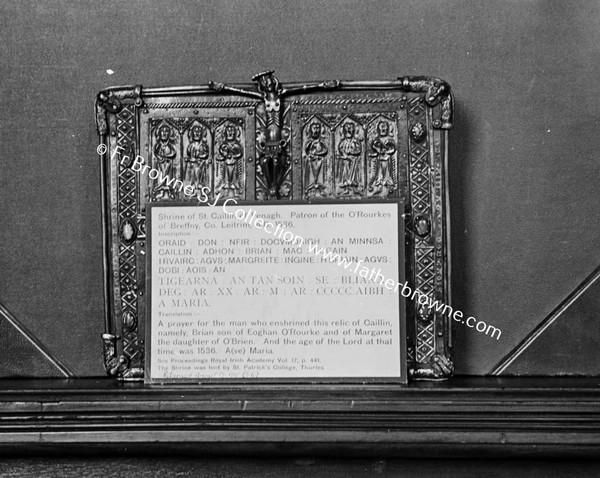 Shrine of St. Caillin Fenagh. Patron of the O'Rorkes
of Breffny, Co. Leitrim, 1536.
Inscription
ORAID : DON : NFIR : : AN MINNSA
CAILLIN : ADHON : BRIAN : MAC :
IRVAIRC : AGVS : MARGREITE : INGINE : : AGVS :
DOBI : AOIS : AN
TIGEARNA : AN TAN SOIN : SE :
DEG : AR : XX : AR : M : AR : CCCCC AIBH :
A MARIA.
Translation :—
A prayer for the man who enshrined this relic of Caillin,
namely, Brian son of Eoghan O'Rourke and of Margaret
the daughter of O'Brien. And the age of the Lord at that
time was 1536. A(ve) Maria.
See Proceedings Royal Academy Vol. p. 441.
The Shrine was lent by St. Patrick's College, Thurles
©Fr Browne S J Collection www.fatherbrowne.com